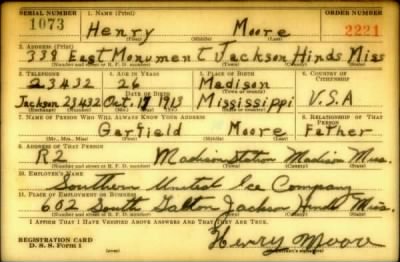 SERIAL NUMBER 1. NAME (Print) ORDER NUMBER
1073 Henry Moore 2221
(First) (Middle) (Last)
2. ADDRESS (Print)
339 East Monument Jackson Hinds Miss
(Number and street or R. F. D. number) (Town) (County) (State)
3. TELEPHONE 4. AGE IN YEARS 5. PLACE OF BIRTH 6. COUNTRY OF CITIZENSHIP
23432 26 Madison
DATE OF BIRTH (Town or county)
Jackson 23432 Oct. 17 1913 Mississippi U.S.A
(Exchange) (Number) (Mo.) (Day) (Yr.) (State or country)
7. NAME OF PERSON WHO WILL ALWAYS KNOW YOUR ADDRESS 8. RELATIONSHIP OF THAT PERSON
Garfield Moore Father
(Mr., Mrs., Miss) (First) (Middle) (Last)
9. ADDRESS OF THAT PERSON
R2 Madison Station Madison Miss.
(Number and street or R. F. D. number) (Town) (County) (State)
10. EMPLOYER'S NAME
Southern United Ice Company
11. PLACE OF EMPLOYMENT OR BUSINESS
602 South Gallatin Jackson Hinds Miss.
(Number and street or R. F. D. number) (Town) (County) (State)
I AFFIRM THAT I HAVE VERIFIED ABOVE ANSWERS AND THAT THEY ARE TRUE.
REGISTRATION CARD
D. S. S. FORM 1 Henry Moore